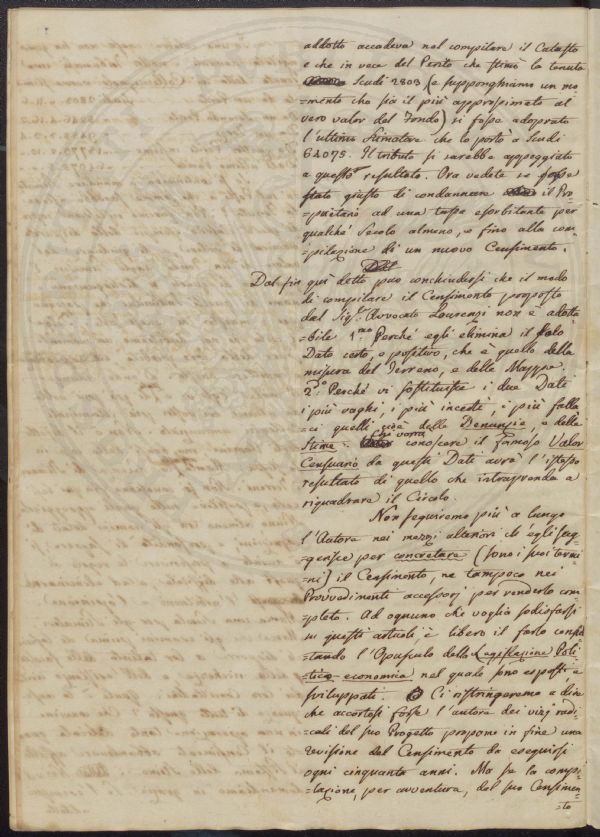 addotto accadeva nel compilare il Catasto
e che in vece del Perito che stimò la tenuta
Scudi 2803 (e supponghiamo un mo-
=mento che sia il più approssimato al
vero valor del Fondo) si fosse adoprato
l'ultimo Stimatore che lo portò a Scudi
64075. Il tributo si sarebbe appoggiato
a questo resultato. Ora vedete se fosse
stato giusto di condannare il Pro-
=prietario ad una tassa esorbitante per
qualche secolo almeno, e fino alla com-
=pilazione di un nuovo Censimento.
Dal fin quì detto può conchiudersi che il modo
di compilare il Censimento proposto
dal Sig.r Avvocato Lourenzi non è adotta-
=bile 1.mo Perché egli elimina il solo
Dato certo, e positivo, che è quello della
misura del Terreno, e delle Mappe.
2.do Perché vi sostituisce i due Dati
i più vaghi, i più incerti, i più falla-
=ci quelli cioè delle Denunzie, e delle
Stime: Chi vorrà conoscere il famoso Valor
Censuario da questi Dati avrà l'istesso
resultato di quello che intraprenda a
riquadrare il Circolo.
Non seguiremo più a lungo
l'Autore nei mezzi ulteriori ch'egli sug-
=gerisce per concretare (sono i suoi termi-
=ni) il Censimento, ne tampoco nei
Provvedimenti accessorj per renderlo com-
=pleto. Ad ognuno che voglia sodisfarsi
su questi articoli è libero il farlo consul-
=tando l'Opuscolo della Legislazione Poli-
=tico-economica nel quale sono esposti, e
sviluppati. Ci ristringeremo a dire
che accortosi forse l'autore dei vizj radi-
=cali del suo Progetto propone in fine una
revisione del Censimento da eseguirsi
ogni cinquanta anni. Ma se la compi-
=lazione, per avventura, del suo Censimen-
=to